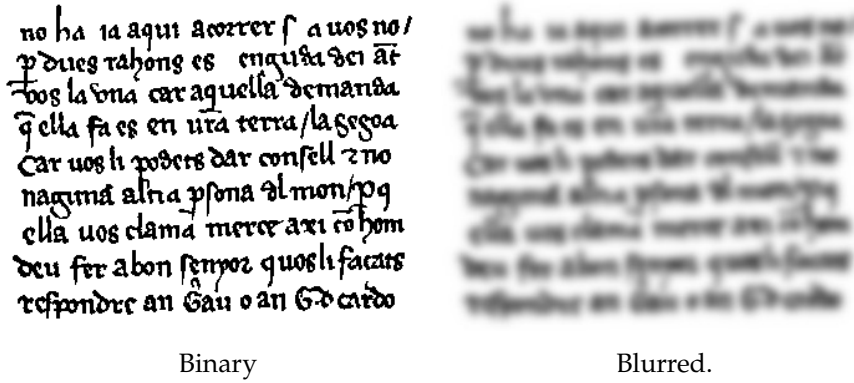 no ha ia aqui acorrer ſ a uos no/
p̲ dues rahons es enguda dei at̄
vos la vna car aquella demanda
q̄ ella fa es en ur̄a terra/la segoa
Car uos li poders dar consell ⁊ no
naguna altra pſona dl mon/p̲q
ella uos clama merce axi co̅ hom
deu fer abon senyor q uos li facats
respondre an Gau o an G. d cardo
Binary
Blurred.